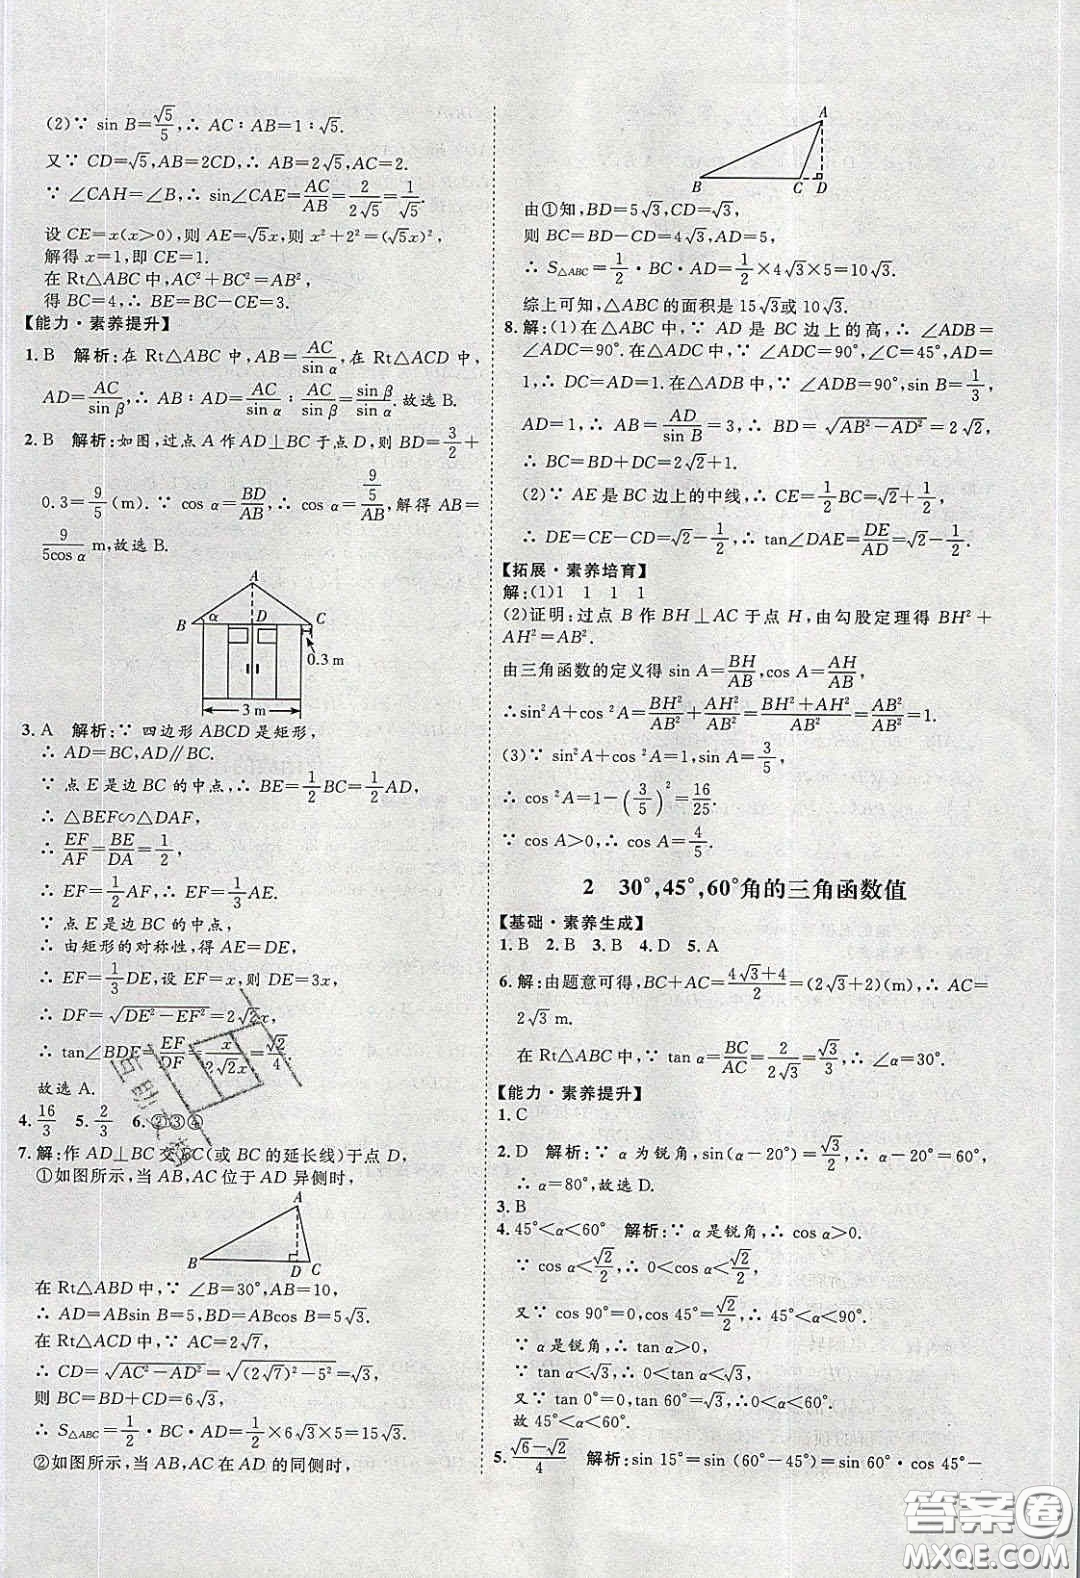 (2)∵ sin B=√5/5,∴ AC∶AB=1∶√5.
又∵ CD=√5,AB=2CD,∴ AB=2√5,AC=2.
∵ ∠CAH=∠B,∴ sin∠CAE=AC/AB=2/2√5=1/√5.
设 CE=x(x>0),则 AE=√5x,则 x²+2²=(√5x)²,
解得 x=1,即 CE=1.
在 Rt△ABC 中,AC²+BC²=AB²,
得 BC=4,∴ BE=BC-CE=3.
【能力·素养提升】
1. B 解析:在 Rt△ABC 中,AB=AC/sin α,在 Rt△ACD 中,
AD=AC/sin β,∴ AB∶AD=AC/sin α∶AC/sin β=sin β/sin α.故选 B.
2. B 解析:如图,过点 A 作 AD⊥BC 于点 D,则 BD=3/2+
0.3=9/5(m).∵ cos α=BD/AB,∴ cos α=9/5/AB,解得 AB=
9/5cos α m,故选 B.
A
B α D C
0.3 m
3 m
3. A 解析:∵ 四边形 ABCD 是矩形,
∴ AD=BC,AD∥BC.
∵ 点 E 是边 BC 的中点,∴ BE=1/2BC=1/2AD,
∴ △BEF∽△DAF,
∴ EF/AF=BE/DA=1/2,
∴ EF=1/2AF,∴ EF=1/3AE.
∵ 点 E 是边 BC 的中点,
∴ 由矩形的对称性,得 AE=DE,
∴ EF=1/3DE,设 EF=x,则 DE=3x,
∴ DF=√(DE²-EF²)=2√2x,
∴ tan∠BDE=EF/DF=x/2√2x=√2/4.
故选 A.
4. 16/3 5. 2/3 6. ②③④
7. 解:作 AD⊥BC 交 BC(或 BC 的延长线)于点 D,
①如图所示,当 AB,AC 位于 AD 异侧时,
A
B D C
在 Rt△ABD 中,∵ ∠B=30°,AB=10,
∴ AD=ABsin B=5,BD=ABcos B=5√3.
在 Rt△ACD 中,∵ AC=2√7,
∴ CD=√(AC²-AD²)=√((2√7)²-5²)=√3,
则 BC=BD+CD=6√3,
∴ S△ABC=1/2·BC·AD=1/2×6√3×5=15√3.
②如图所示,当 AB,AC 在 AD 的同侧时,
A
B C D
由①知,BD=5√3,CD=√3,
则 BC=BD-CD=4√3,AD=5,
∴ S△ABC=1/2·BC·AD=1/2×4√3×5=10√3.
综上可知,△ABC 的面积是 15√3或 10√3.
8. 解:(1)在△ABC 中,∵ AD 是 BC 边上的高,∴ ∠ADB=
∠ADC=90°.在△ADC 中,∵ ∠ADC=90°,∠C=45°,AD=
1,∴ DC=AD=1.在△ADB 中,∵ ∠ADB=90°,sin B=1/3,
AD=1,∴ AB=AD/sin B=3,∴ BD=√(AB²-AD²)=2√2,
∴ BC=BD+DC=2√2+1.
(2)∵ AE 是 BC 边上的中线,∴ CE=1/2BC=√2+1/2,
∴ DE=CE-CD=√2-1/2,∴ tan∠DAE=DE/AD=√2-1/2.
【拓展·素养培育】
解:(1)1 1 1 1
(2)证明:过点 B 作 BH⊥AC 于点 H,由勾股定理得 BH²+
AH²=AB².
由三角函数的定义得 sin A=BH/AB,cos A=AH/AB,
∴sin²A+cos²A=BH²/AB²+AH²/AB²=BH²+AH²/AB²=AB²/AB²=1.
(3)∵ sin²A+cos²A=1,sin A=3/5,
∴ cos²A=1-(3/5)²=16/25.
∵ cos A>0,∴ cos A=4/5.
2 30°,45°,60°角的三角函数值
【基础·素养生成】
1. B 2. B 3. B 4. D 5. A
6. 解:由题意可得,BC+AC=4√3+4/2=(2√3+2)(m),∴ AC=
2√3 m.
在 Rt△ABC 中,∵ tan α=BC/AC=2/2√3=√3/3,∴ ∠α=30°.
【能力·素养提升】
1. C
2. D 解析:∵ α 为锐角,sin(α-20°)=√3/2,∴ α-20°=60°,
∴ α=80°,故选 D.
3. B
4. 45°<α<60° 解析:∵ α 是锐角,∴ cos α>0.
∵ cos α<√2/2,∴ 0<cos α<√2/2,
又∵ cos 90°=0,cos 45°=√2/2,∴ 45°<α<90°.
∵ α 是锐角,∴ tan α>0.
∵ tan α<√3,∴ 0<tan α<√3,
又∵ tan 0°=0,tan 60°=√3,∴0<α<60°.
故 45°<α<60°.
5. √6-√2/4 解析:sin 15°=sin (60°-45°)=sin 60°·cos 45°-
互助
答案圈
MXQE.COM